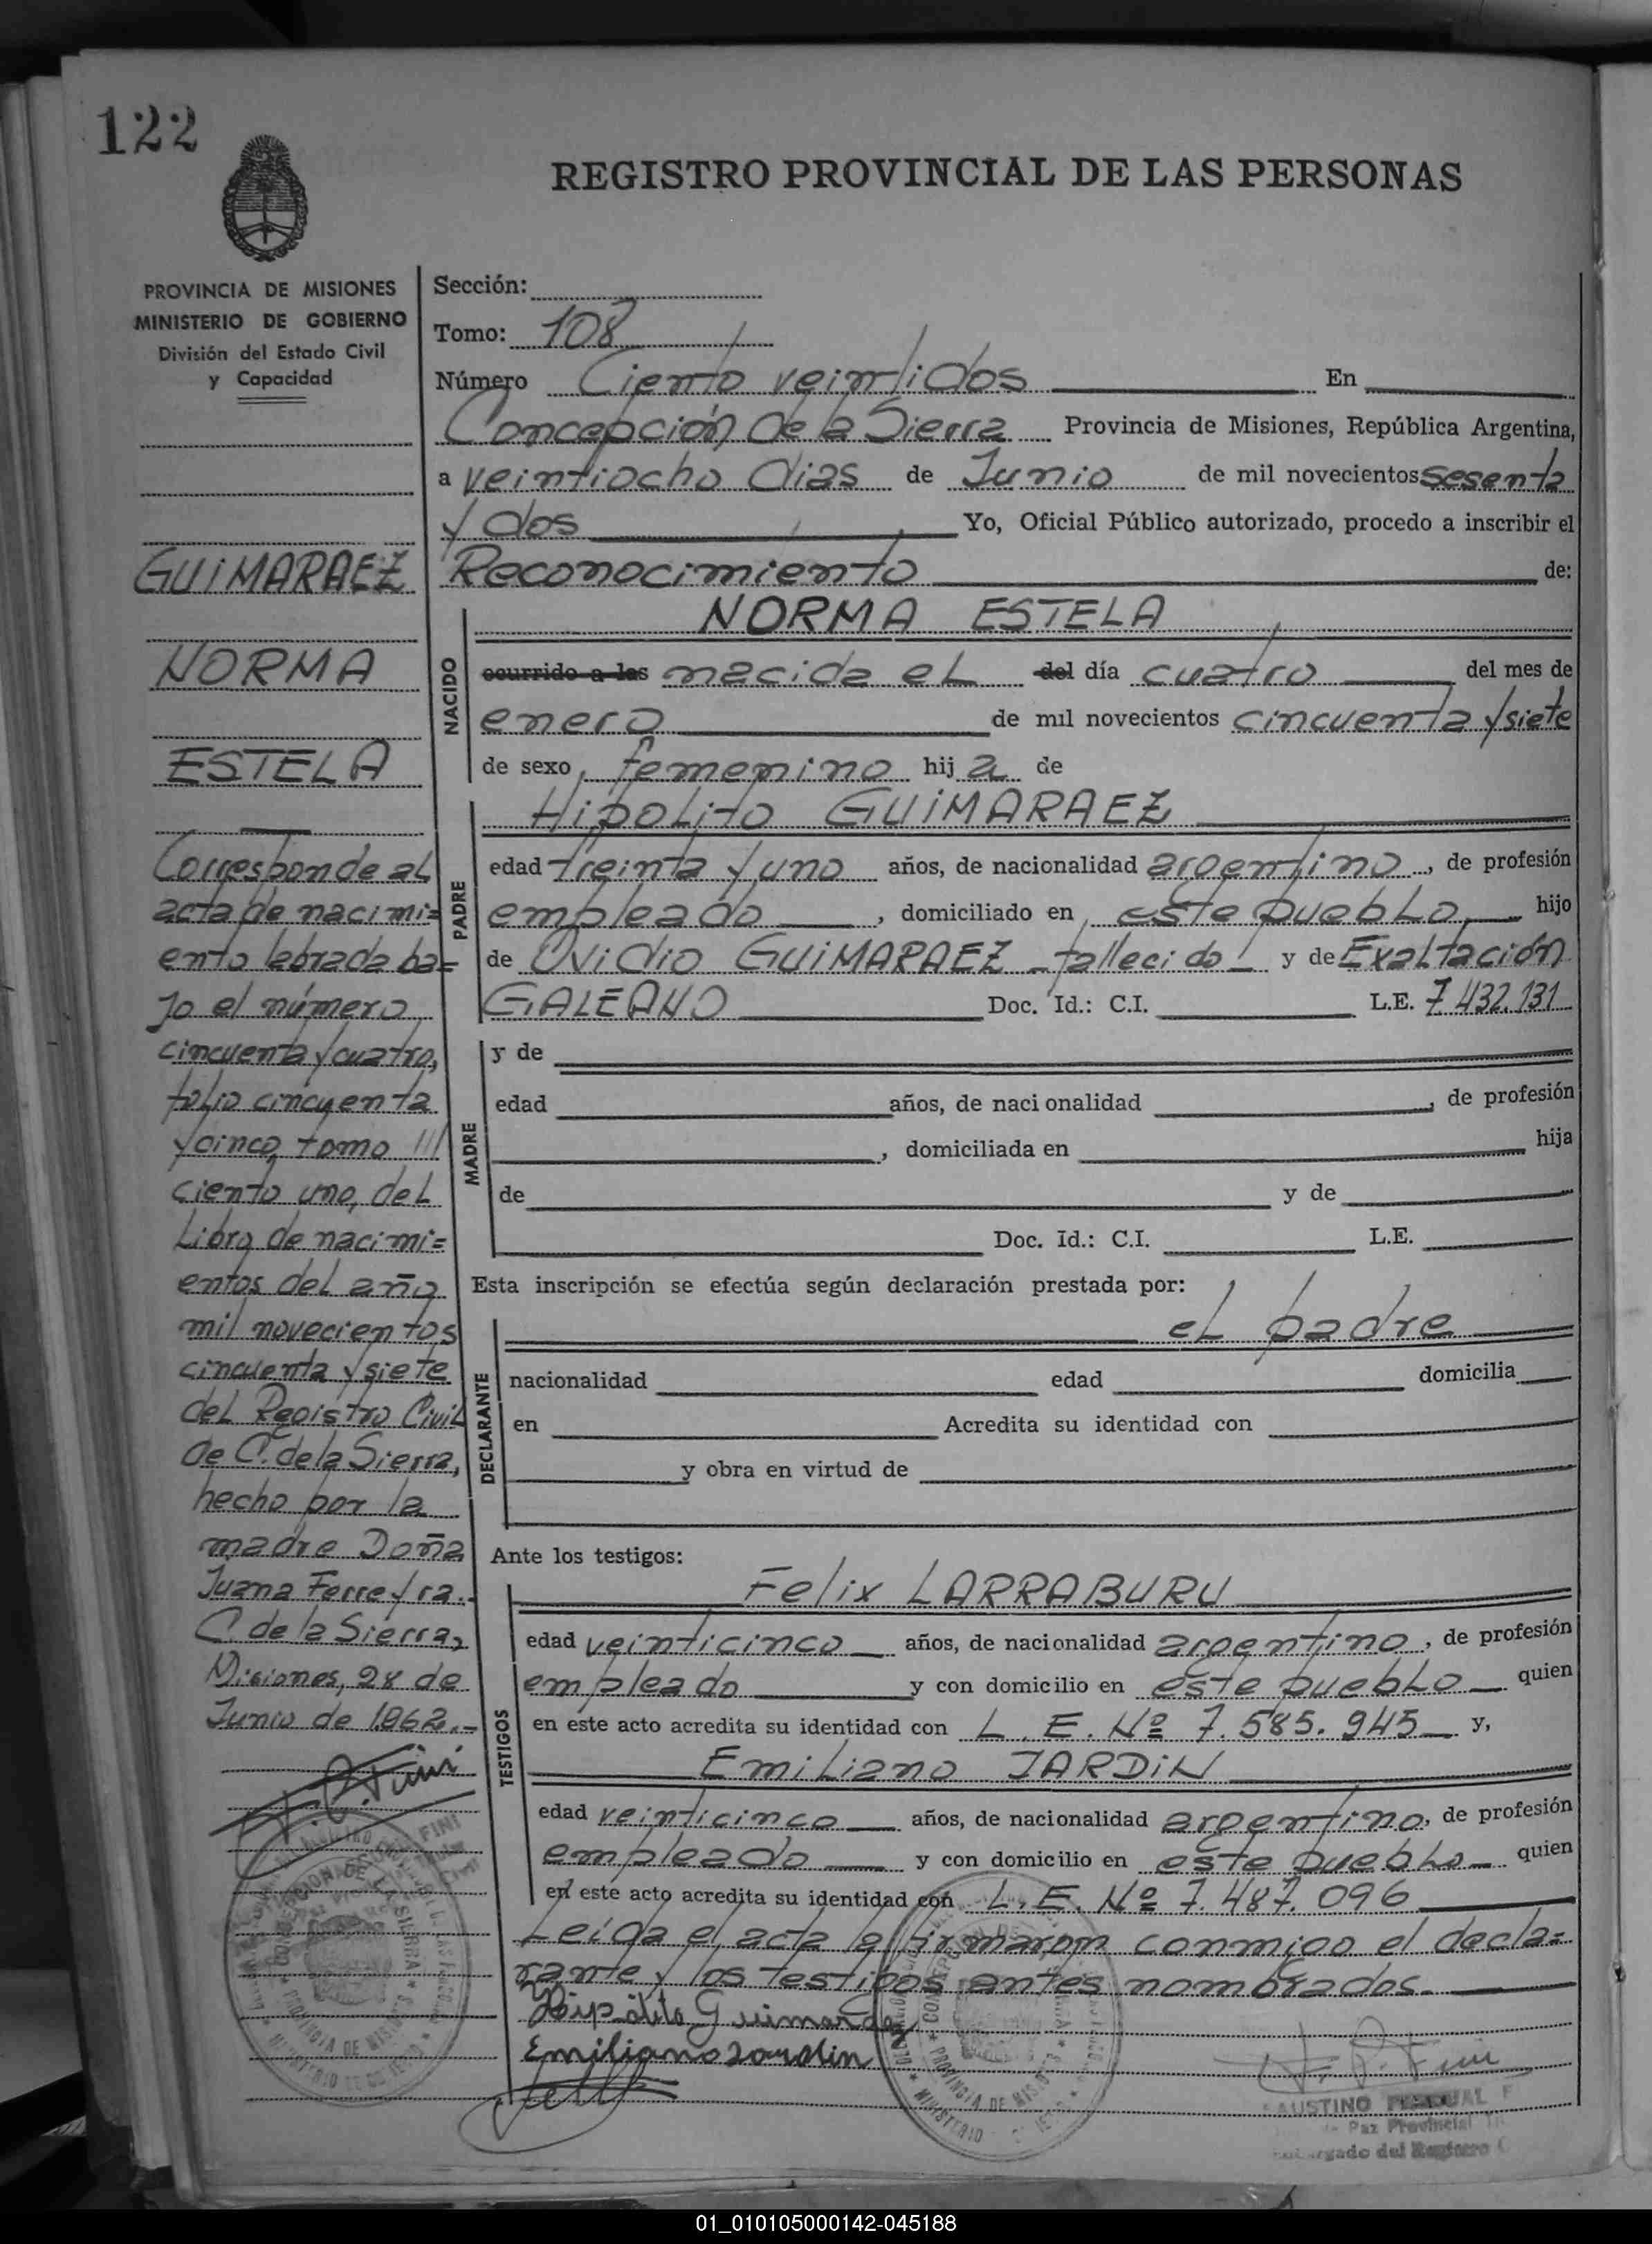 122
REGISTRO PROVINCIAL DE LAS PERSONAS
PROVINCIA DE MISIONES
MINISTERIO DE GOBIERNO
División del Estado Civil
y Capacidad
GUIMARAEZ
NORMA
ESTELA
Corresponde al
acta de nacimi=
ento labrada ba=
jo el número
cincuenta y cuatro,
folio cincuenta
y cinco, tomo
ciento uno, del
Libro de nacimi=
entos del año
mil novecientos
cincuenta y siete
del Registro Civil
de C. de la Sierra,
hecho por la
madre Doña
Juana Ferreyra.
C. de la Sierra,
Misiones, 28 de
Junio de 1962.-
Sección:
Tomo: 108
Número Ciento veintidos En
Concepción de la Sierra Provincia de Misiones, República Argentina,
a veintiocho dias de Junio de mil novecientos sesenta
y dos Yo, Oficial Público autorizado, procedo a inscribir el
Reconocimiento de:
NORMA ESTELA
NACIDO
ocurrido a las nacida el del día cuatro del mes de
enero de mil novecientos cincuenta y siete
de sexo femenino hij a de
Hipolito GUIMARAEZ
PADRE
edad treinta y uno años, de nacionalidad argentino, de profesión
empleado, domiciliado en este pueblo hijo
de Ovidio GUIMARAEZ -fallecido- y de Exaltación
GALEANO Doc. Id.: C.I. L.E. 7.432.131
MADRE
y de
edad años, de naci onalidad , de profesión
, domiciliada en hija
de y de
Doc. Id.: C.I. L.E.
Esta inscripción se efectúa según declaración prestada por:
el padre
DECLARANTE
nacionalidad edad domicilia
en Acredita su identidad con
y obra en virtud de
Ante los testigos:
TESTIGOS
Felix LARRABURU
edad veinticinco años, de nacionalidad argentino, de profesión
empleado y con domicilio en este pueblo quien
en este acto acredita su identidad con L. E. Nº 7.585.945 y,
Emiliano JARDIN
edad veinticinco años, de nacionalidad argentino, de profesión
empleado y con domicilio en este pueblo quien
en este acto acredita su identidad con L. E. Nº 7.487.096
Leida el acta la firmaron conmigo el decla=
rante y los testigos antes nombrados.
Hipólito Guimaraez
Emiliano Jardin
F. P. Fini
PROVINCIA DE MISIONES
MINISTERIO
AUSTINO PASCUAL F
de Paz Provincial
Encargado del Registro C
01_010105000142-045188